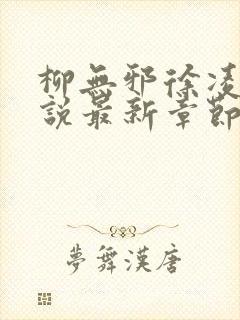 柳無邪徐凌
說最新章節
夢舞漢唐